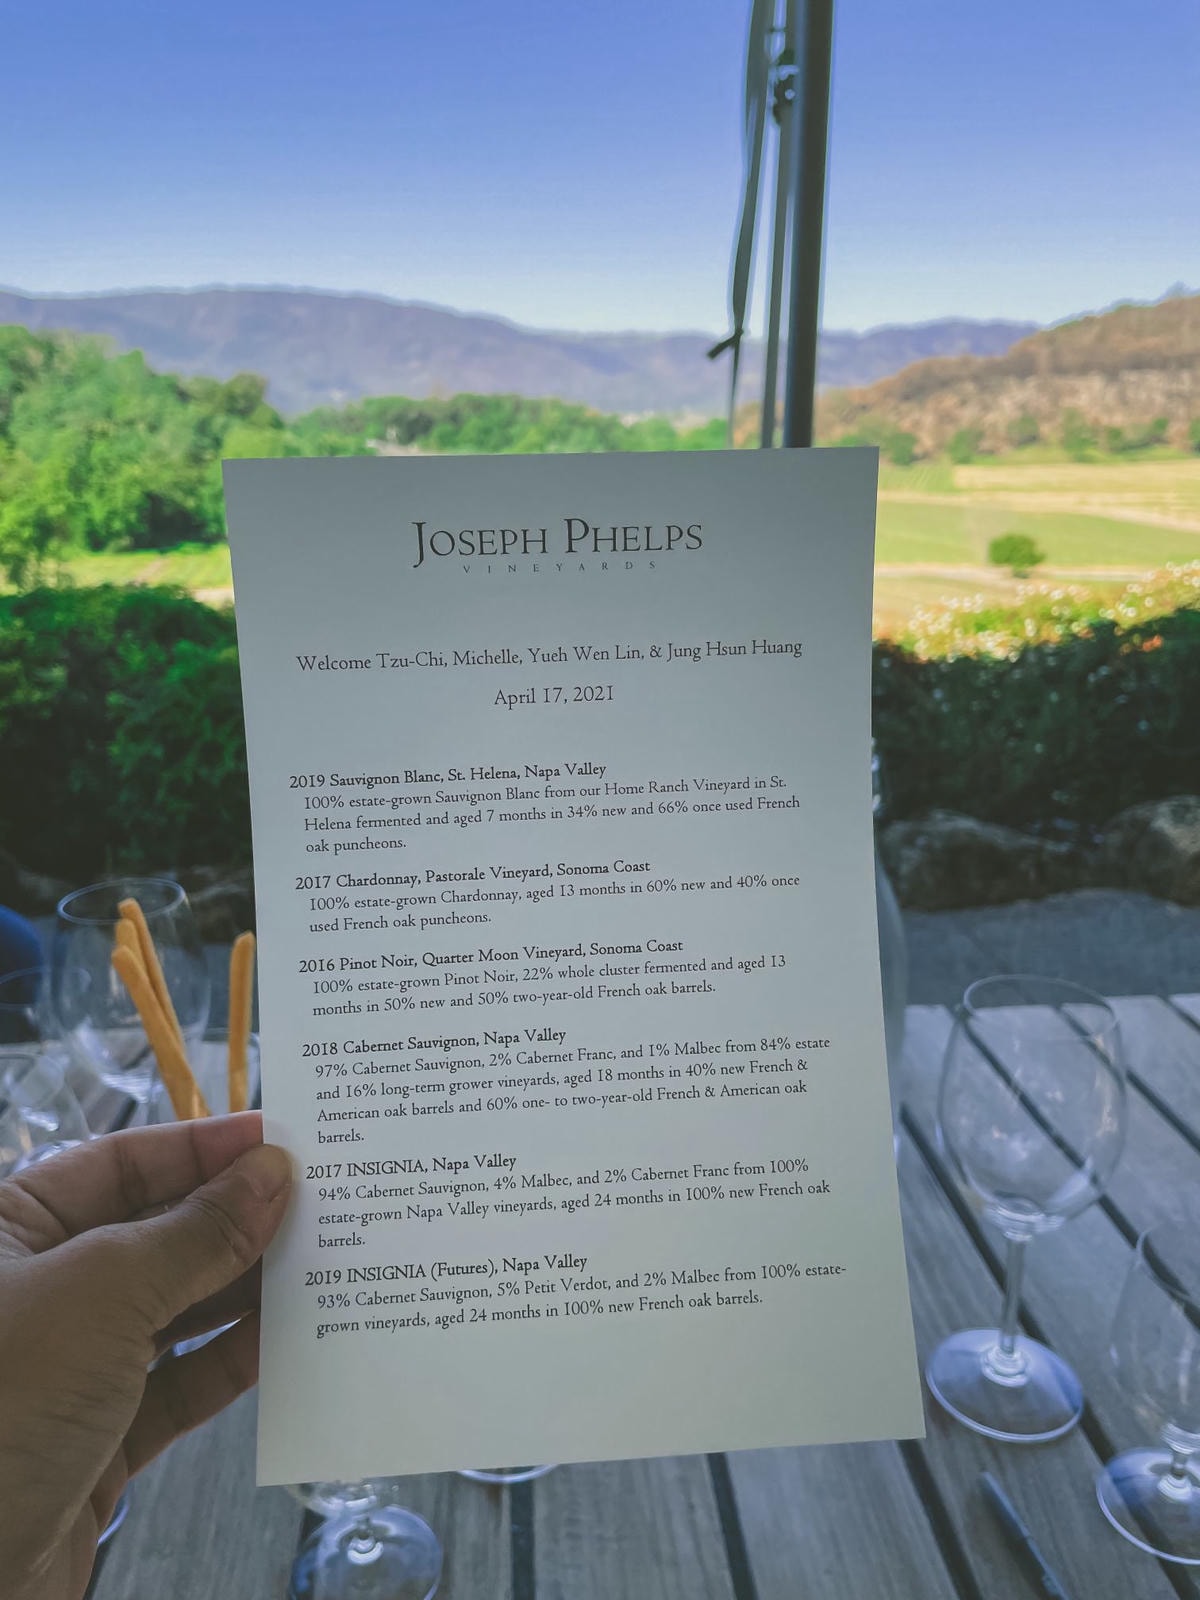 JOSEPH PHELPS
VINEYARDS
Welcome Tzu-Chi, Michelle, Yueh Wen Lin, & Jung Hsun Huang
April 17, 2021
2019 Sauvignon Blanc, St. Helena, Napa Valley
100% estate-grown Sauvignon Blanc from our Home Ranch Vineyard in St.
Helena fermented and aged 7 months in 34% new and 66% once used French
oak puncheons.
2017 Chardonnay, Pastorale Vineyard, Sonoma Coast
100% estate-grown Chardonnay, aged 13 months in 60% new and 40% once
used French oak puncheons.
2016 Pinot Noir, Quarter Moon Vineyard, Sonoma Coast
100% estate-grown Pinot Noir, 22% whole cluster fermented and aged 13
months in 50% new and 50% two-year-old French oak barrels.
2018 Cabernet Sauvignon, Napa Valley
97% Cabernet Sauvignon, 2% Cabernet Franc, and 1% Malbec from 84% estate
and 16% long-term grower vineyards, aged 18 months in 40% new French &
American oak barrels and 60% one- to two-year-old French & American oak
barrels.
2017 INSIGNIA, Napa Valley
94% Cabernet Sauvignon, 4% Malbec, and 2% Cabernet Franc from 100%
estate-grown Napa Valley vineyards, aged 24 months in 100% new French oak
barrels.
2019 INSIGNIA (Futures), Napa Valley
93% Cabernet Sauvignon, 5% Petit Verdot, and 2% Malbec from 100% estate-
grown vineyards, aged 24 months in 100% new French oak barrels.